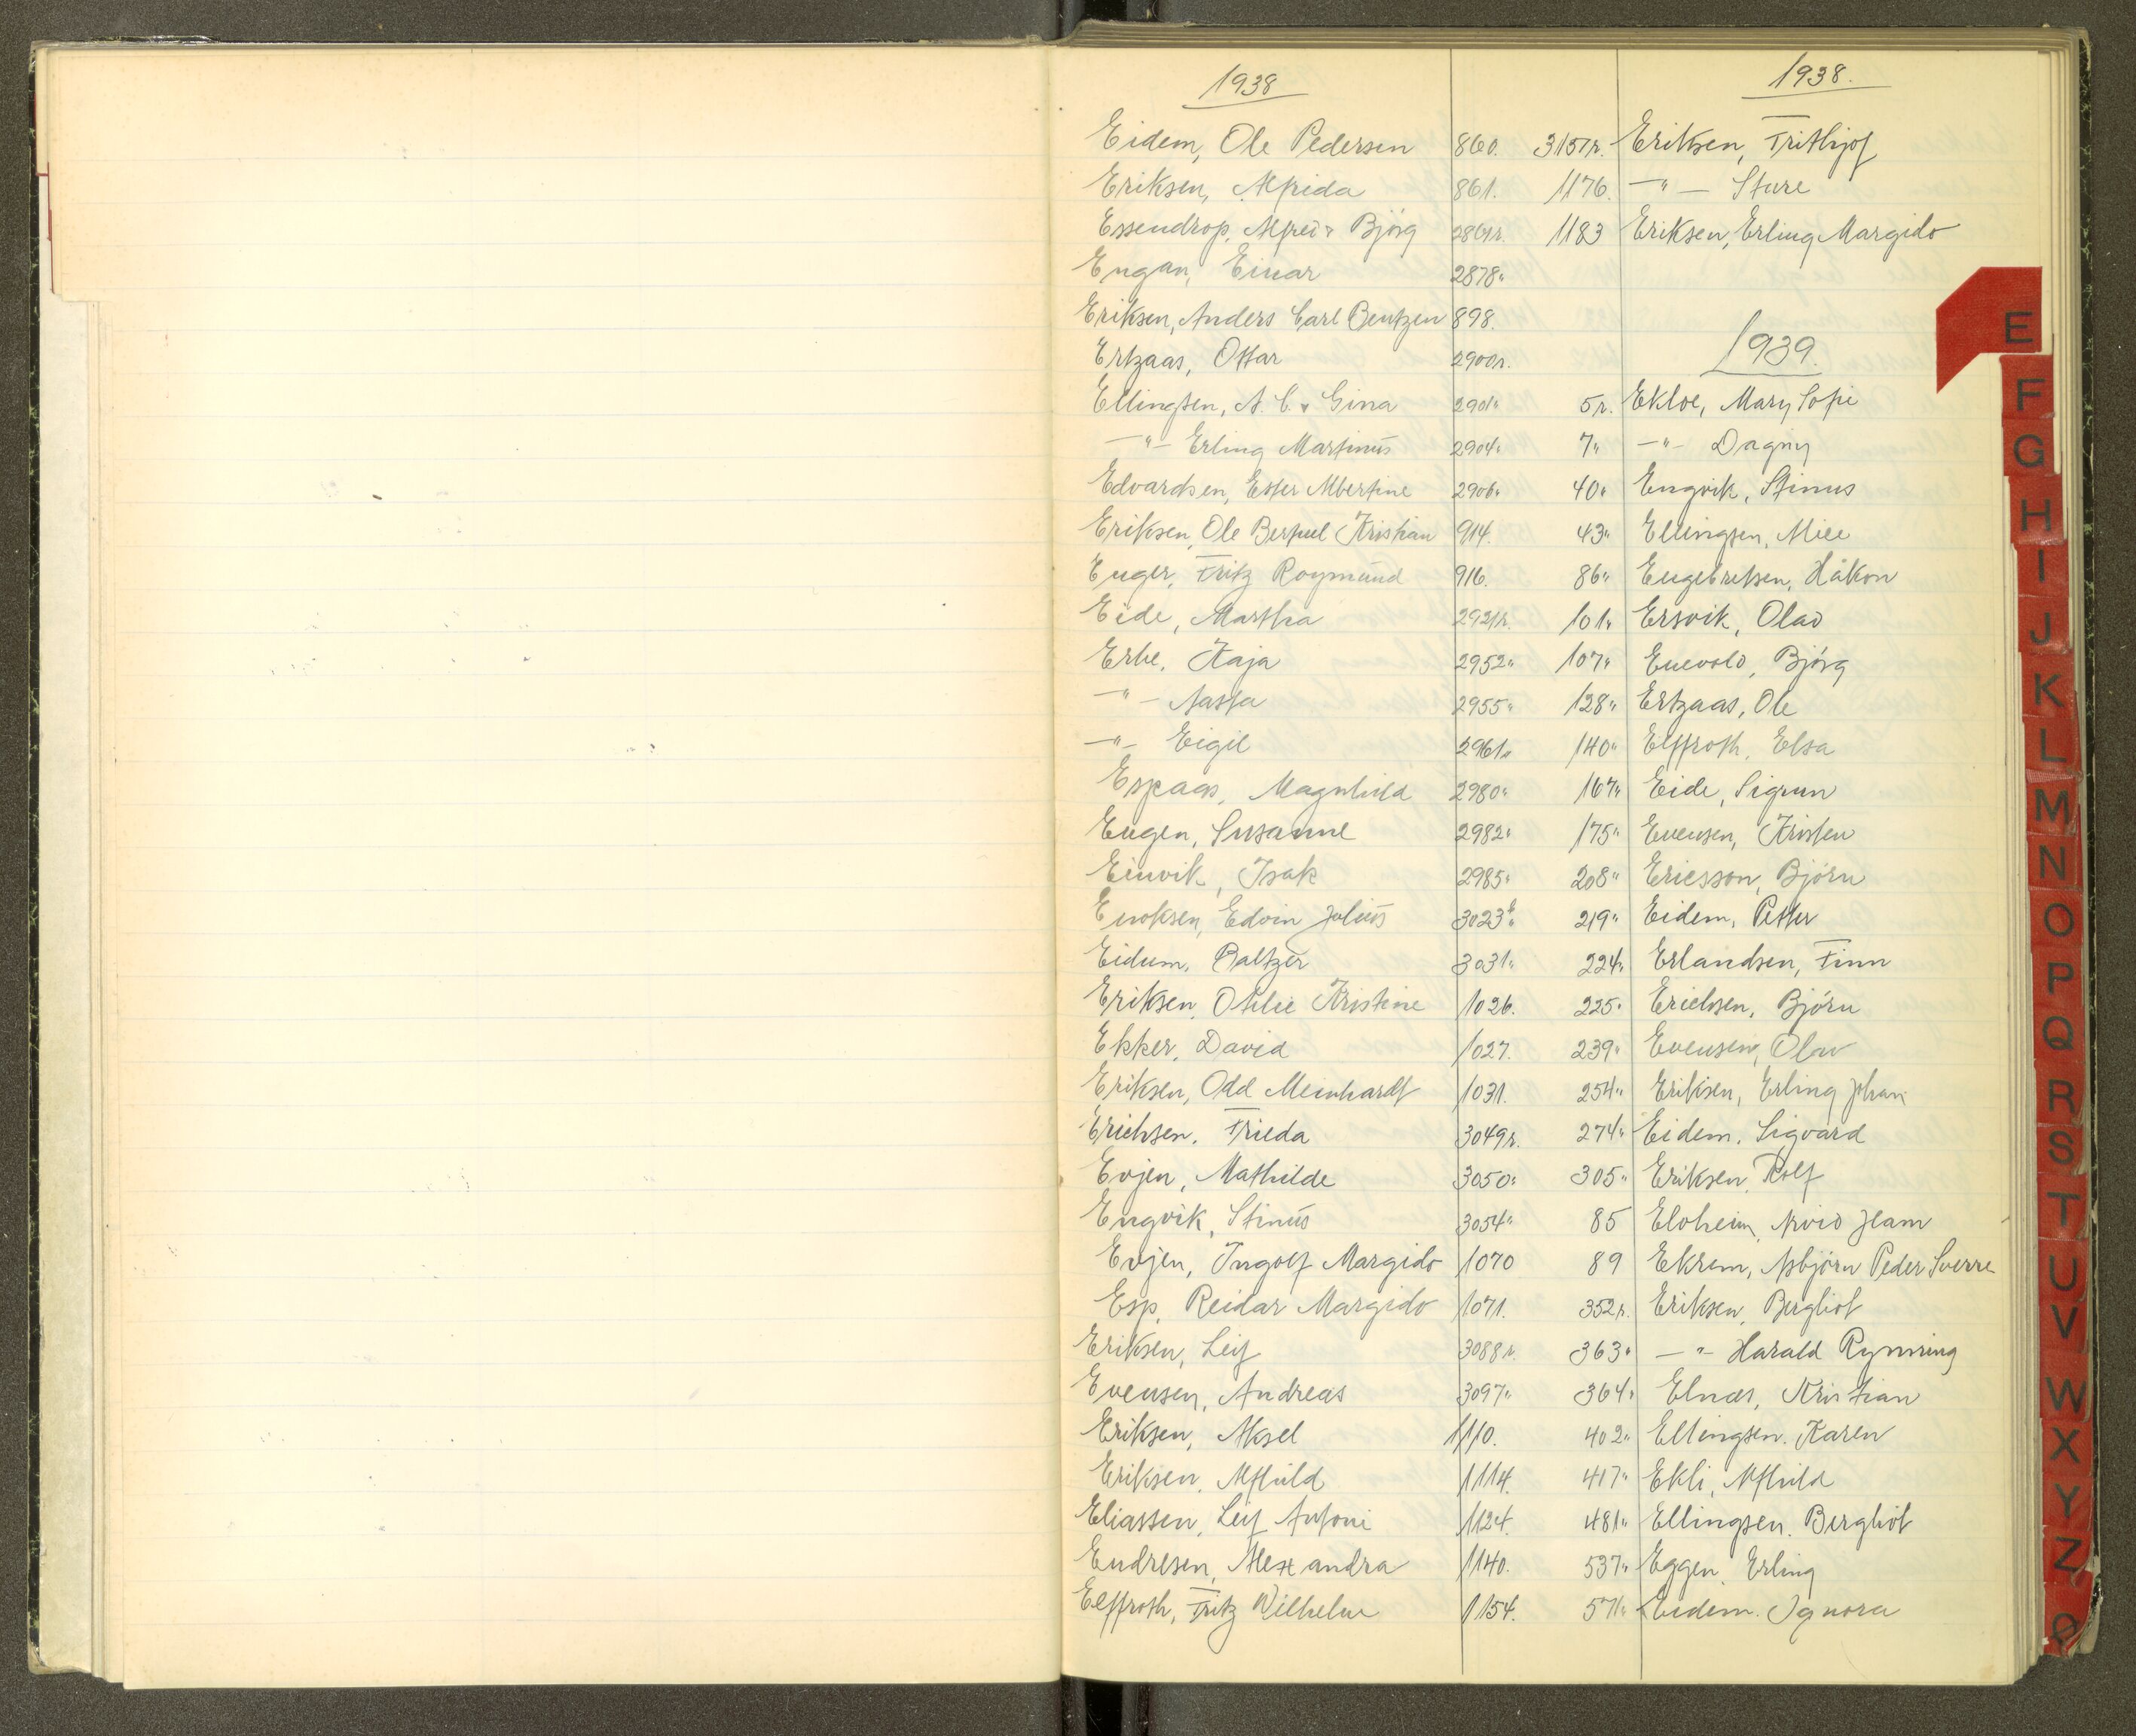 1938
Eidem, Ole Pedersen 860.
Eriksen, Alfrida 861.
Essendrop, Alfred & Bjørg 2861r.
Engan, Einar 2878"
Eriksen, Anders Carl Bentzen 898.
Ertzaas, Ottar 2900r.
Ellingsen, A. C. & Gina 2901"
—"— Erling Martinus 2904"
Edvardsen, Ester Albertine 2906"
Eriksen, Ole Bertuel Kristian 914.
Enger, Fritz Roymund 916.
Eide, Martha 2921r.
Erbe, Kaja 2952"
—"— Aasta 2955"
—"— Eigil 2961"
Espaas, Magnhild 2980"
Eugen, Susanne 2982"
Einvik, Isak 2985"
Enoksen, Edvin Julius 3023b"
Eidum, Baltzer 3031"
Eriksen, Otilie Kristine 1026.
Ekker, David 1027.
Eriksen, Odd Meinhardt 1031.
Erichsen, Frieda 3049r.
Evjen, Mathilde 3050"
Engvik, Stinus 3054"
Evjen, Ingolf Margido 1070
Esp, Reidar Margido 1071.
Eriksen, Leif 3088r.
Evensen, Andreas 3097"
Eriksen, Aksel 1110.
Eriksen, Alfhild 1114.
Eliassen, Leif Antoni 1124.
Endresen, Alexandra 1140.
Elffroth, Fritz Wilhelm 1154.
1938.
3157r. Eriksen, Frithjof
1176. —"— Sture
1183 Eriksen, Erling Margido
1939.
5r. Ekloe, Mary Sofie
7" —"— Dagny
40" Engvik, Stinus
43" Ellingsen,
86" Engebretsen, Håkon
101" Ersvik, Olav
107" Enevold, Bjørg
128" Ertzaas, Ole
140" Elffroth, Elsa
167" Eide, Sigrun
175" Evensen, Kristen
208" Ericsson, Bjørn
219" Eidem, Petter
224" Erlandsen, Finn
225" Erichsen, Bjørn
239" Evensen, Olav
254" Eriksen, Erling Johan
274" Eidem, Sigvard
305" Eriksen, Rolf
85 Elvheim, Arvid
89 Ekrem, Asbjørn Peder Sverre
352r. Eriksen, Bergliot
363" —"— Harald Rynning
364" Elnæs, Kristian
402" Ellingsen. Karen
417" Ekli, Alfhild
481" Ellingsen. Bergliot
537" Eggen, Erling
571" Eidem. Ignora
E
F
G
H
I
J
K
L
M
N
O
P
Q
R
S
T
U
V
W
X
Y
Z
Ø